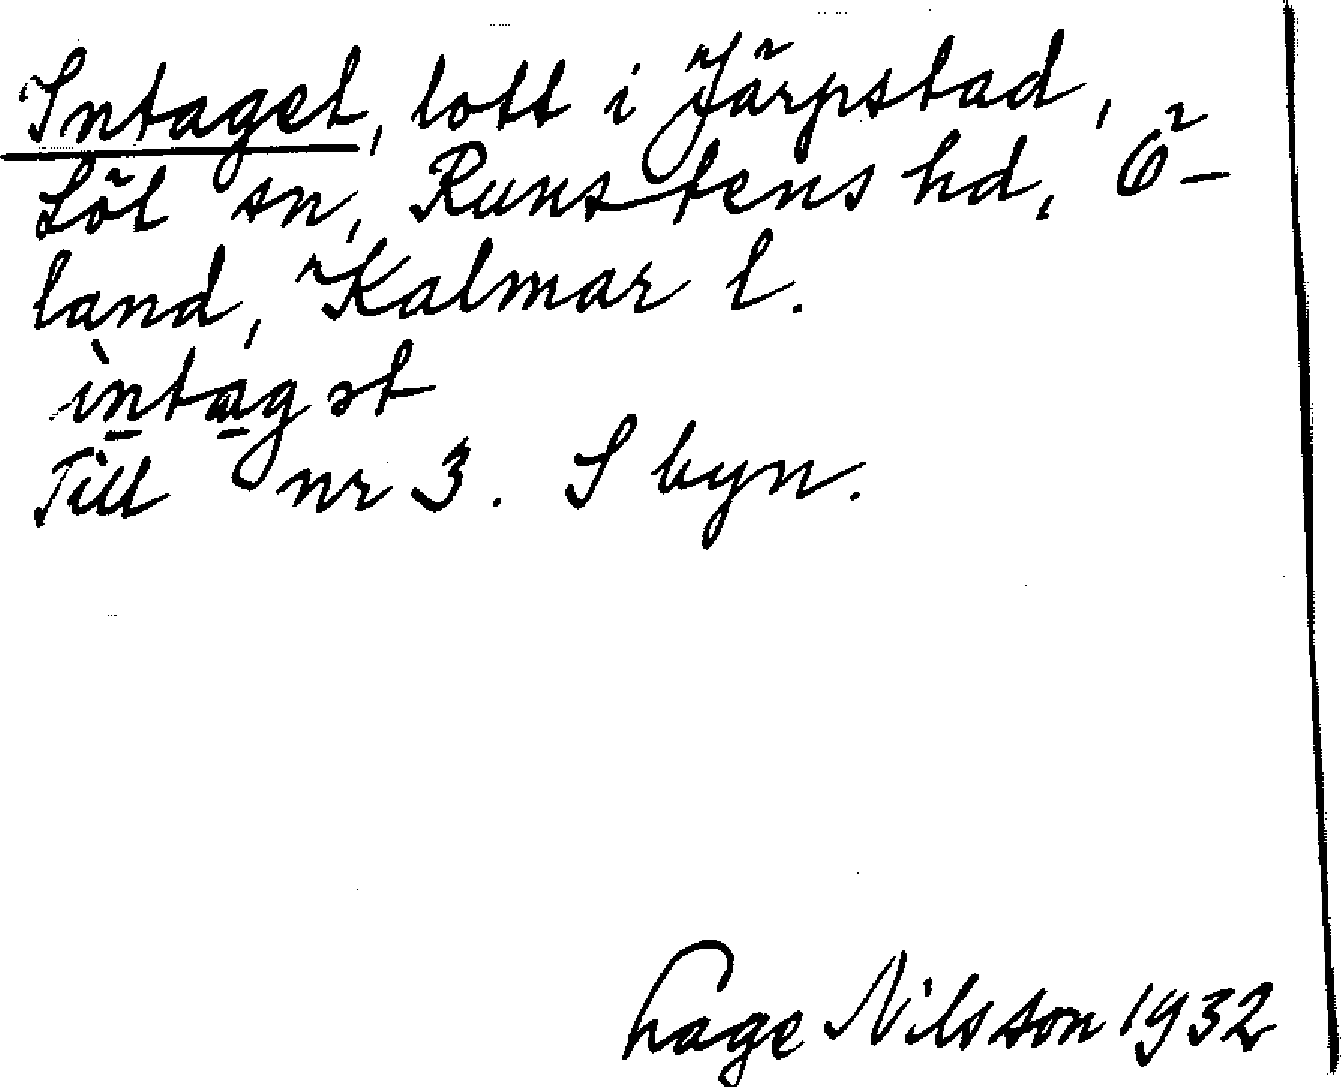 Intaget, lott i Järpstad,
Löt sn, Runstens hd, Ö-
land, Kalmar l.
ìntagət
Till nr 3. I byn.
Lage Nilsson 1932